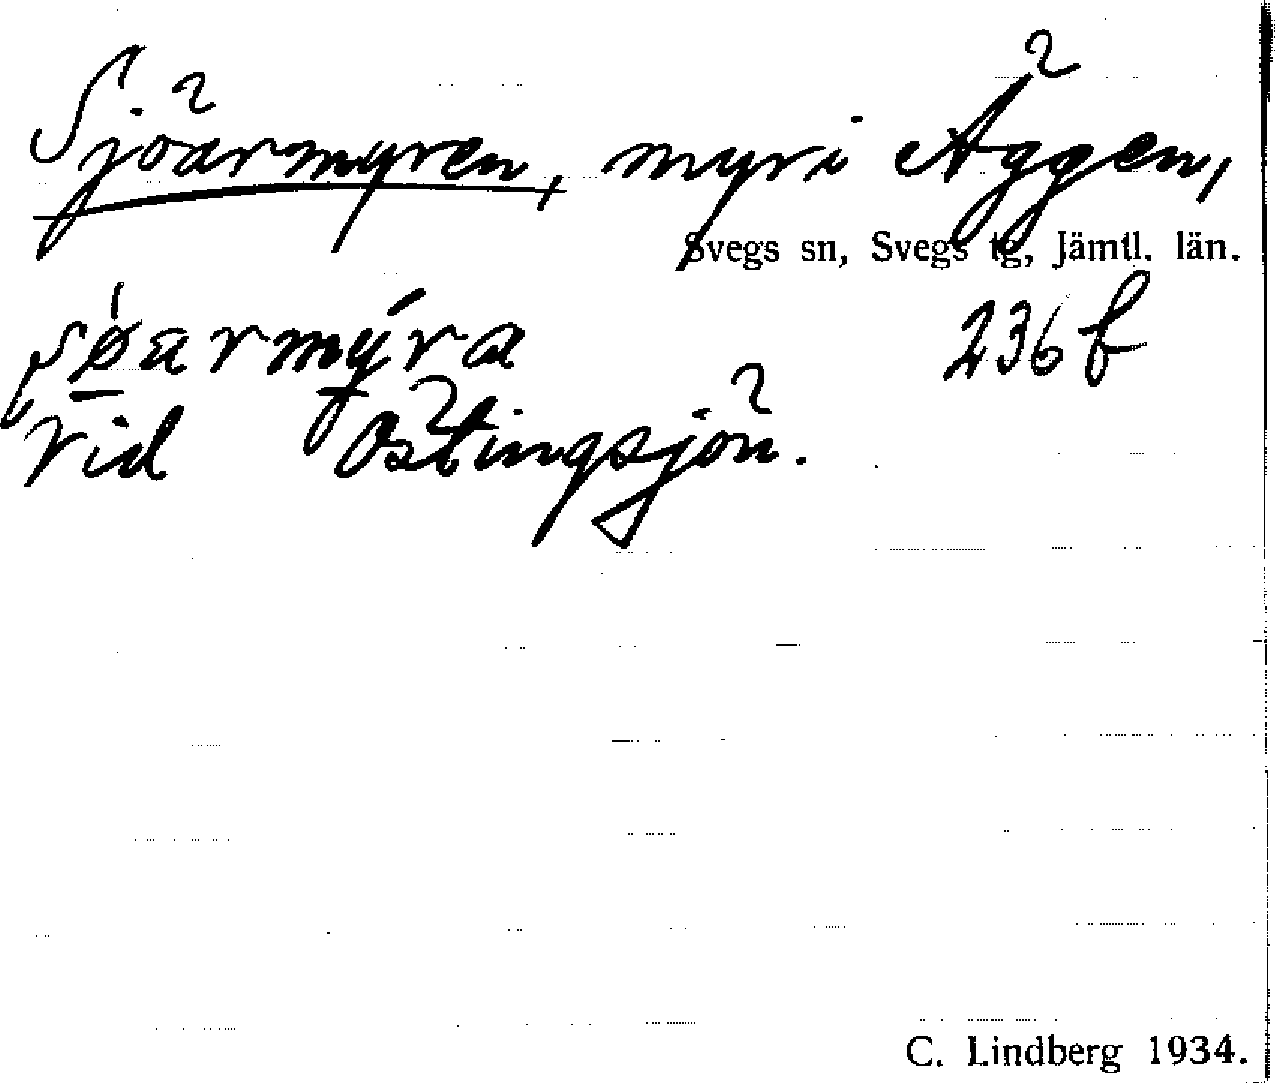 Sjöarmyren, myr i Äggen,
Svegs sn, Svegs tg, Jämtl. län.
236 b
Vid Östingsjön.
C. Lindberg 1934.